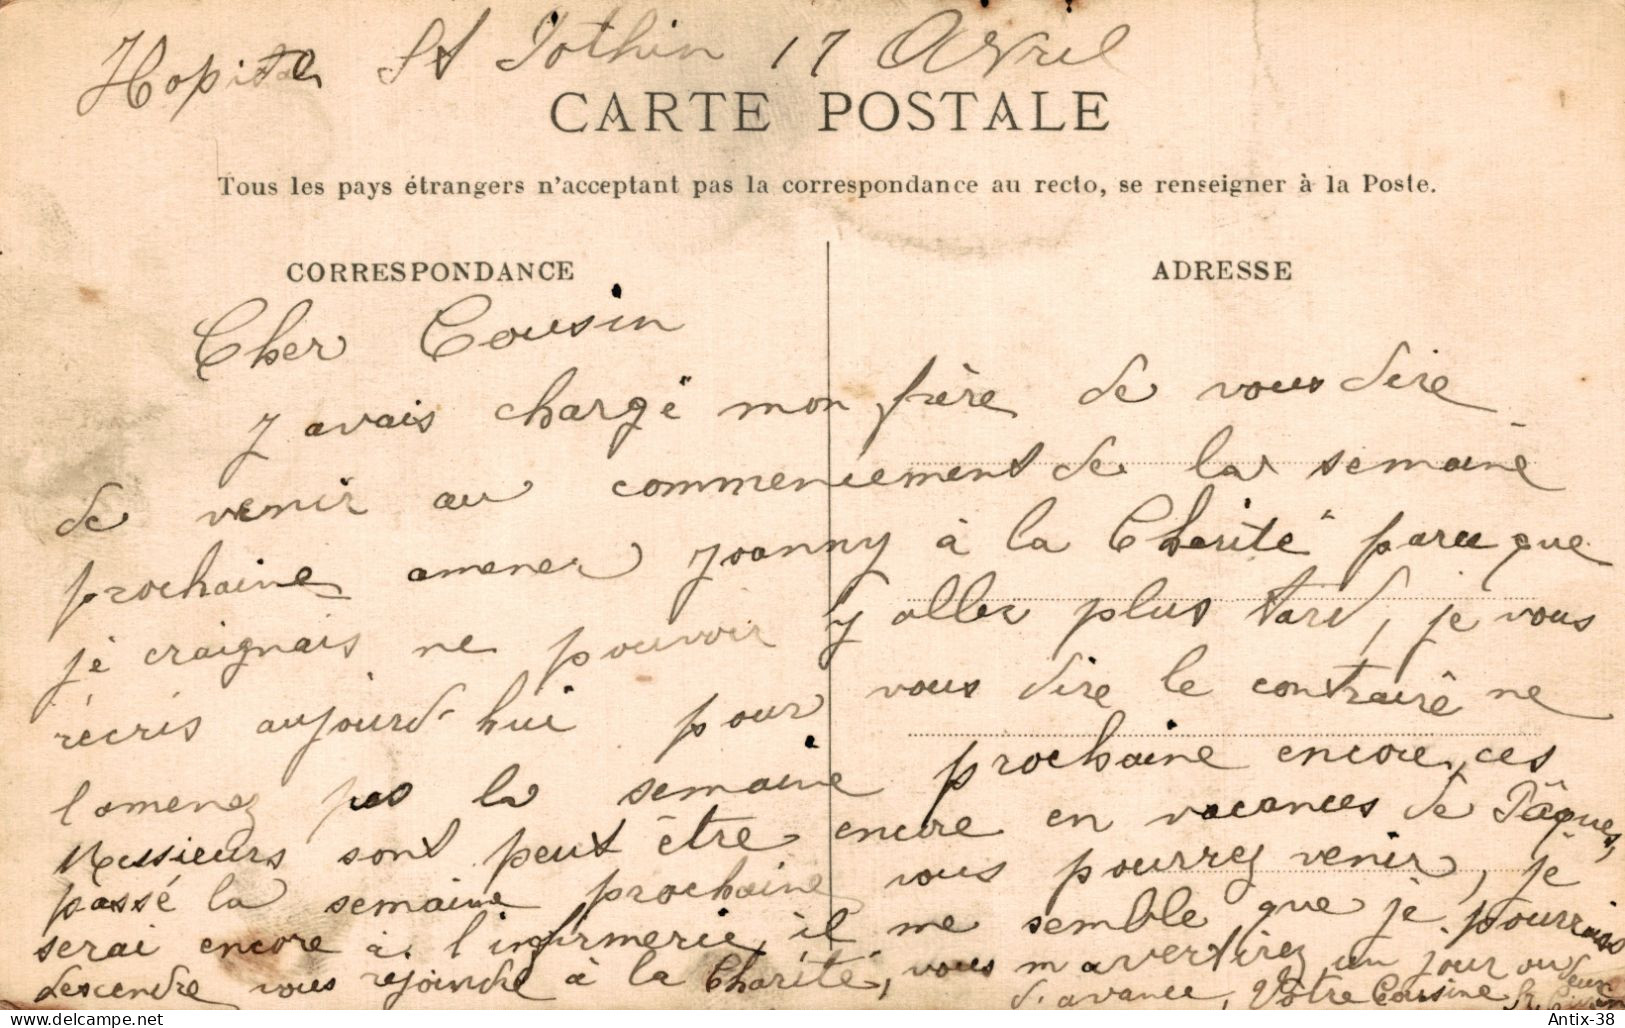 Hopital St Pothin 17 Avril
CARTE POSTALE
Tous les pays étrangers n'acceptant pas la correspondance au recto, se renseigner à la Poste.
CORRESPONDANCE
ADRESSE
Cher Cousin
J avais chargé mon frère de vous dire
de venir au commencement de la semaine
prochaine amener Joanny à la Charité parce que
je craignais ne pouvoir y aller plus tard, je vous
récris aujourd'hui pour vous dire le contraire ne
l'amenez pas la semaine prochaine encore, ces
Messieurs sont peut être encore en vacances de Pâques,
passé la semaine prochaine vous pourrez venir, je
serai encore à l'infirmerie, il me semble que je pourrais
descendre vous rejoindre à la Charité, vous m'avertirez un jour ou deux
d'avance, Votre Cousine
www.delcampe.net
Antix-38